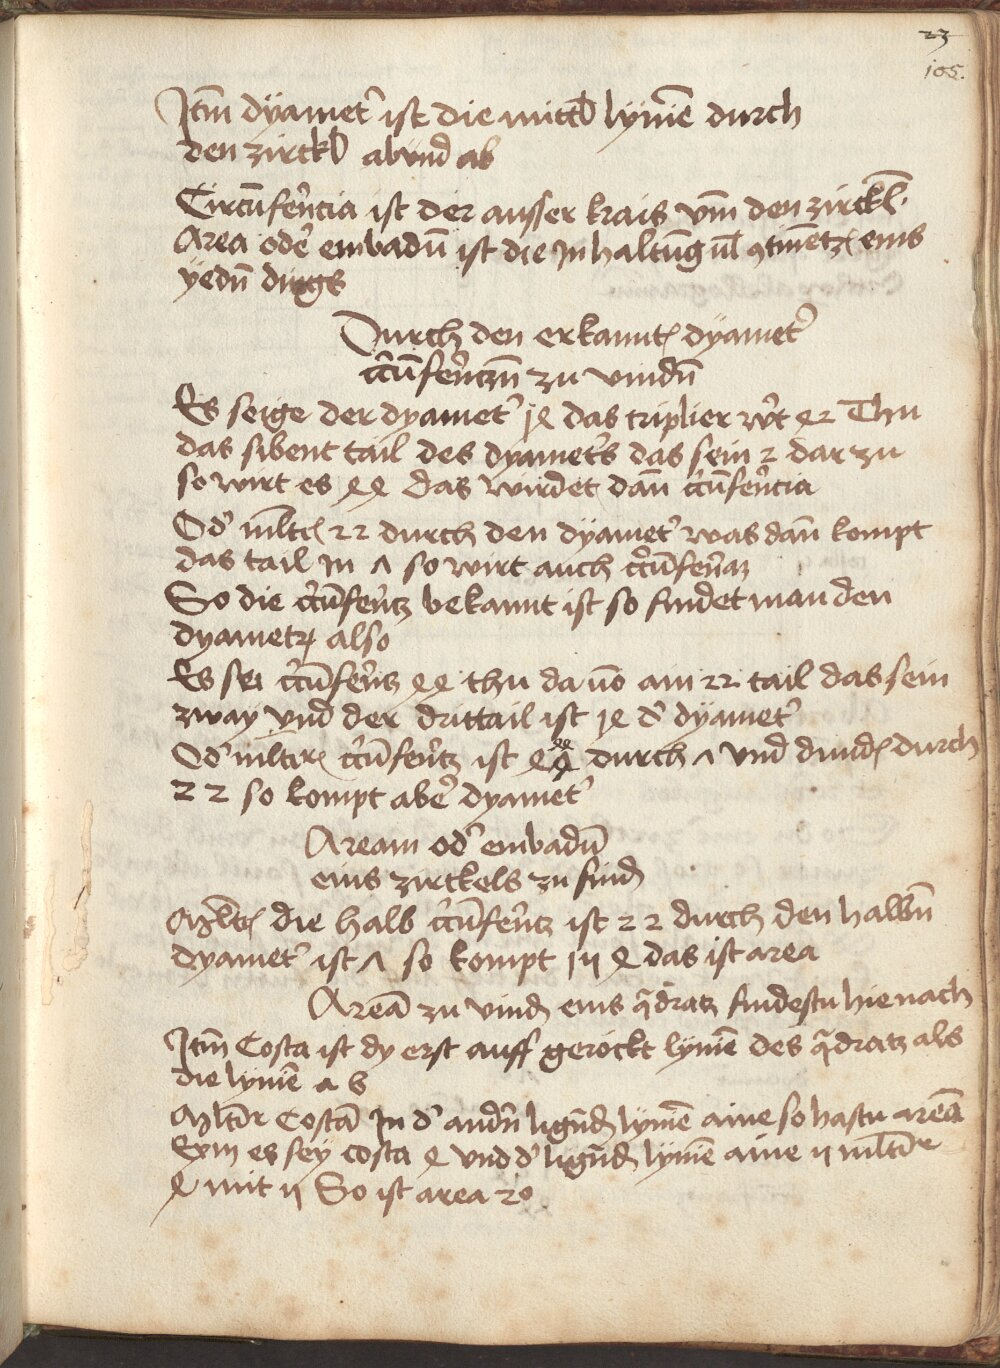 23
105.
Itm̄ dyamet̉ ist die mittl̄ lynīe durch
den zirckl̄ ab vnd ab
Circūfer̄ncia ist der ausser krais vm̄ den zirckl̄.
Area oder̉ embadū ist die Inhaltūg vn̄ ꝯtinētꝫ eins
yedn̄ dings
Durch den erkannt̄ dyamet̉
c̉cūfer̄nczn̄ zu vindn̄
Es seige der dyamet̉ 14 das triplier wirt 42 Thu
das sibent tail des dyamet̉s das sein 2 dar zu
so wirt es 44 das wirdet dan̄ c̉cūfer̄ncia
Od̉ mltc̄ 22 durch den dyamet̉ was dan̄ kompt
das tail In 7 so wirt auch c̉cūfer̄nꝫ
So die c̉cūfer̄ntz bekannt ist so findet man den
dyametꝝ also
Es sei c̉cūfer̄nz 44 thu da uō ain 22 tail das sein
zway vnd der drittail ist 14 d̉ dyamet̉
Od̉ mltir̄ c̉cūfer̄ntz ist 44 durch 7 vnd diuid̄ durch
22 so kompt aber̉ dyamet̉
Aream od̉ embadū
eins zirckels zu find̄
Mltc̄ die halb c̉cūfer̄ntz ist 22 durch den halbn̄
dyamet̉ ist 7 so kompt 154 das ist area
Areā zu vind̄ eins q̄dratz findestu hie nach
Itm̄ Costa ist dy erst auff gerockt lynīe des q̄dratz als
die lynīe a b
Mltir̄ Costā In d̉ andn̄ lignd̄ lynīe aine so hastu areā
Exm̄ es sey costa 4 vnd d̉ lignd̄ lynīe aine 5 mltir̄
4 mit 5 So ist area 20